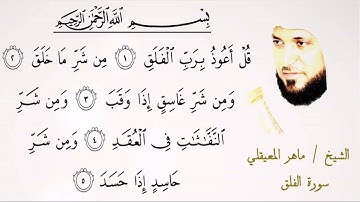 بِسْمِ ٱللَّهِ ٱلرَّحْمَٰنِ ٱلرَّحِيمِ
قُلْ أَعُوذُ بِرَبِّ ٱلْفَلَقِ ۝١ مِن شَرِّ مَا خَلَقَ ۝٢
وَمِن شَرِّ غَاسِقٍ إِذَا وَقَبَ ۝٣ وَمِن شَرِّ
ٱلنَّفَّٰثَٰتِ فِى ٱلْعُقَدِ ۝٤ وَمِن شَرِّ
حَاسِدٍ إِذَا حَسَدَ ۝٥
الشيخ / ماهر المعيقلي
سورة الفلق